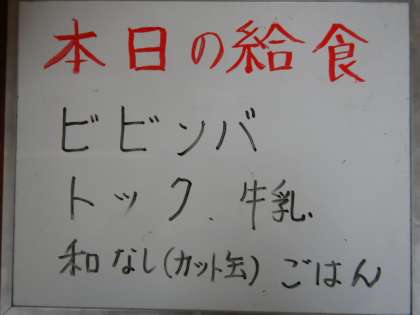 本日の給食
ビビンバ
トック、牛乳、
和なし(カット缶)ごはん